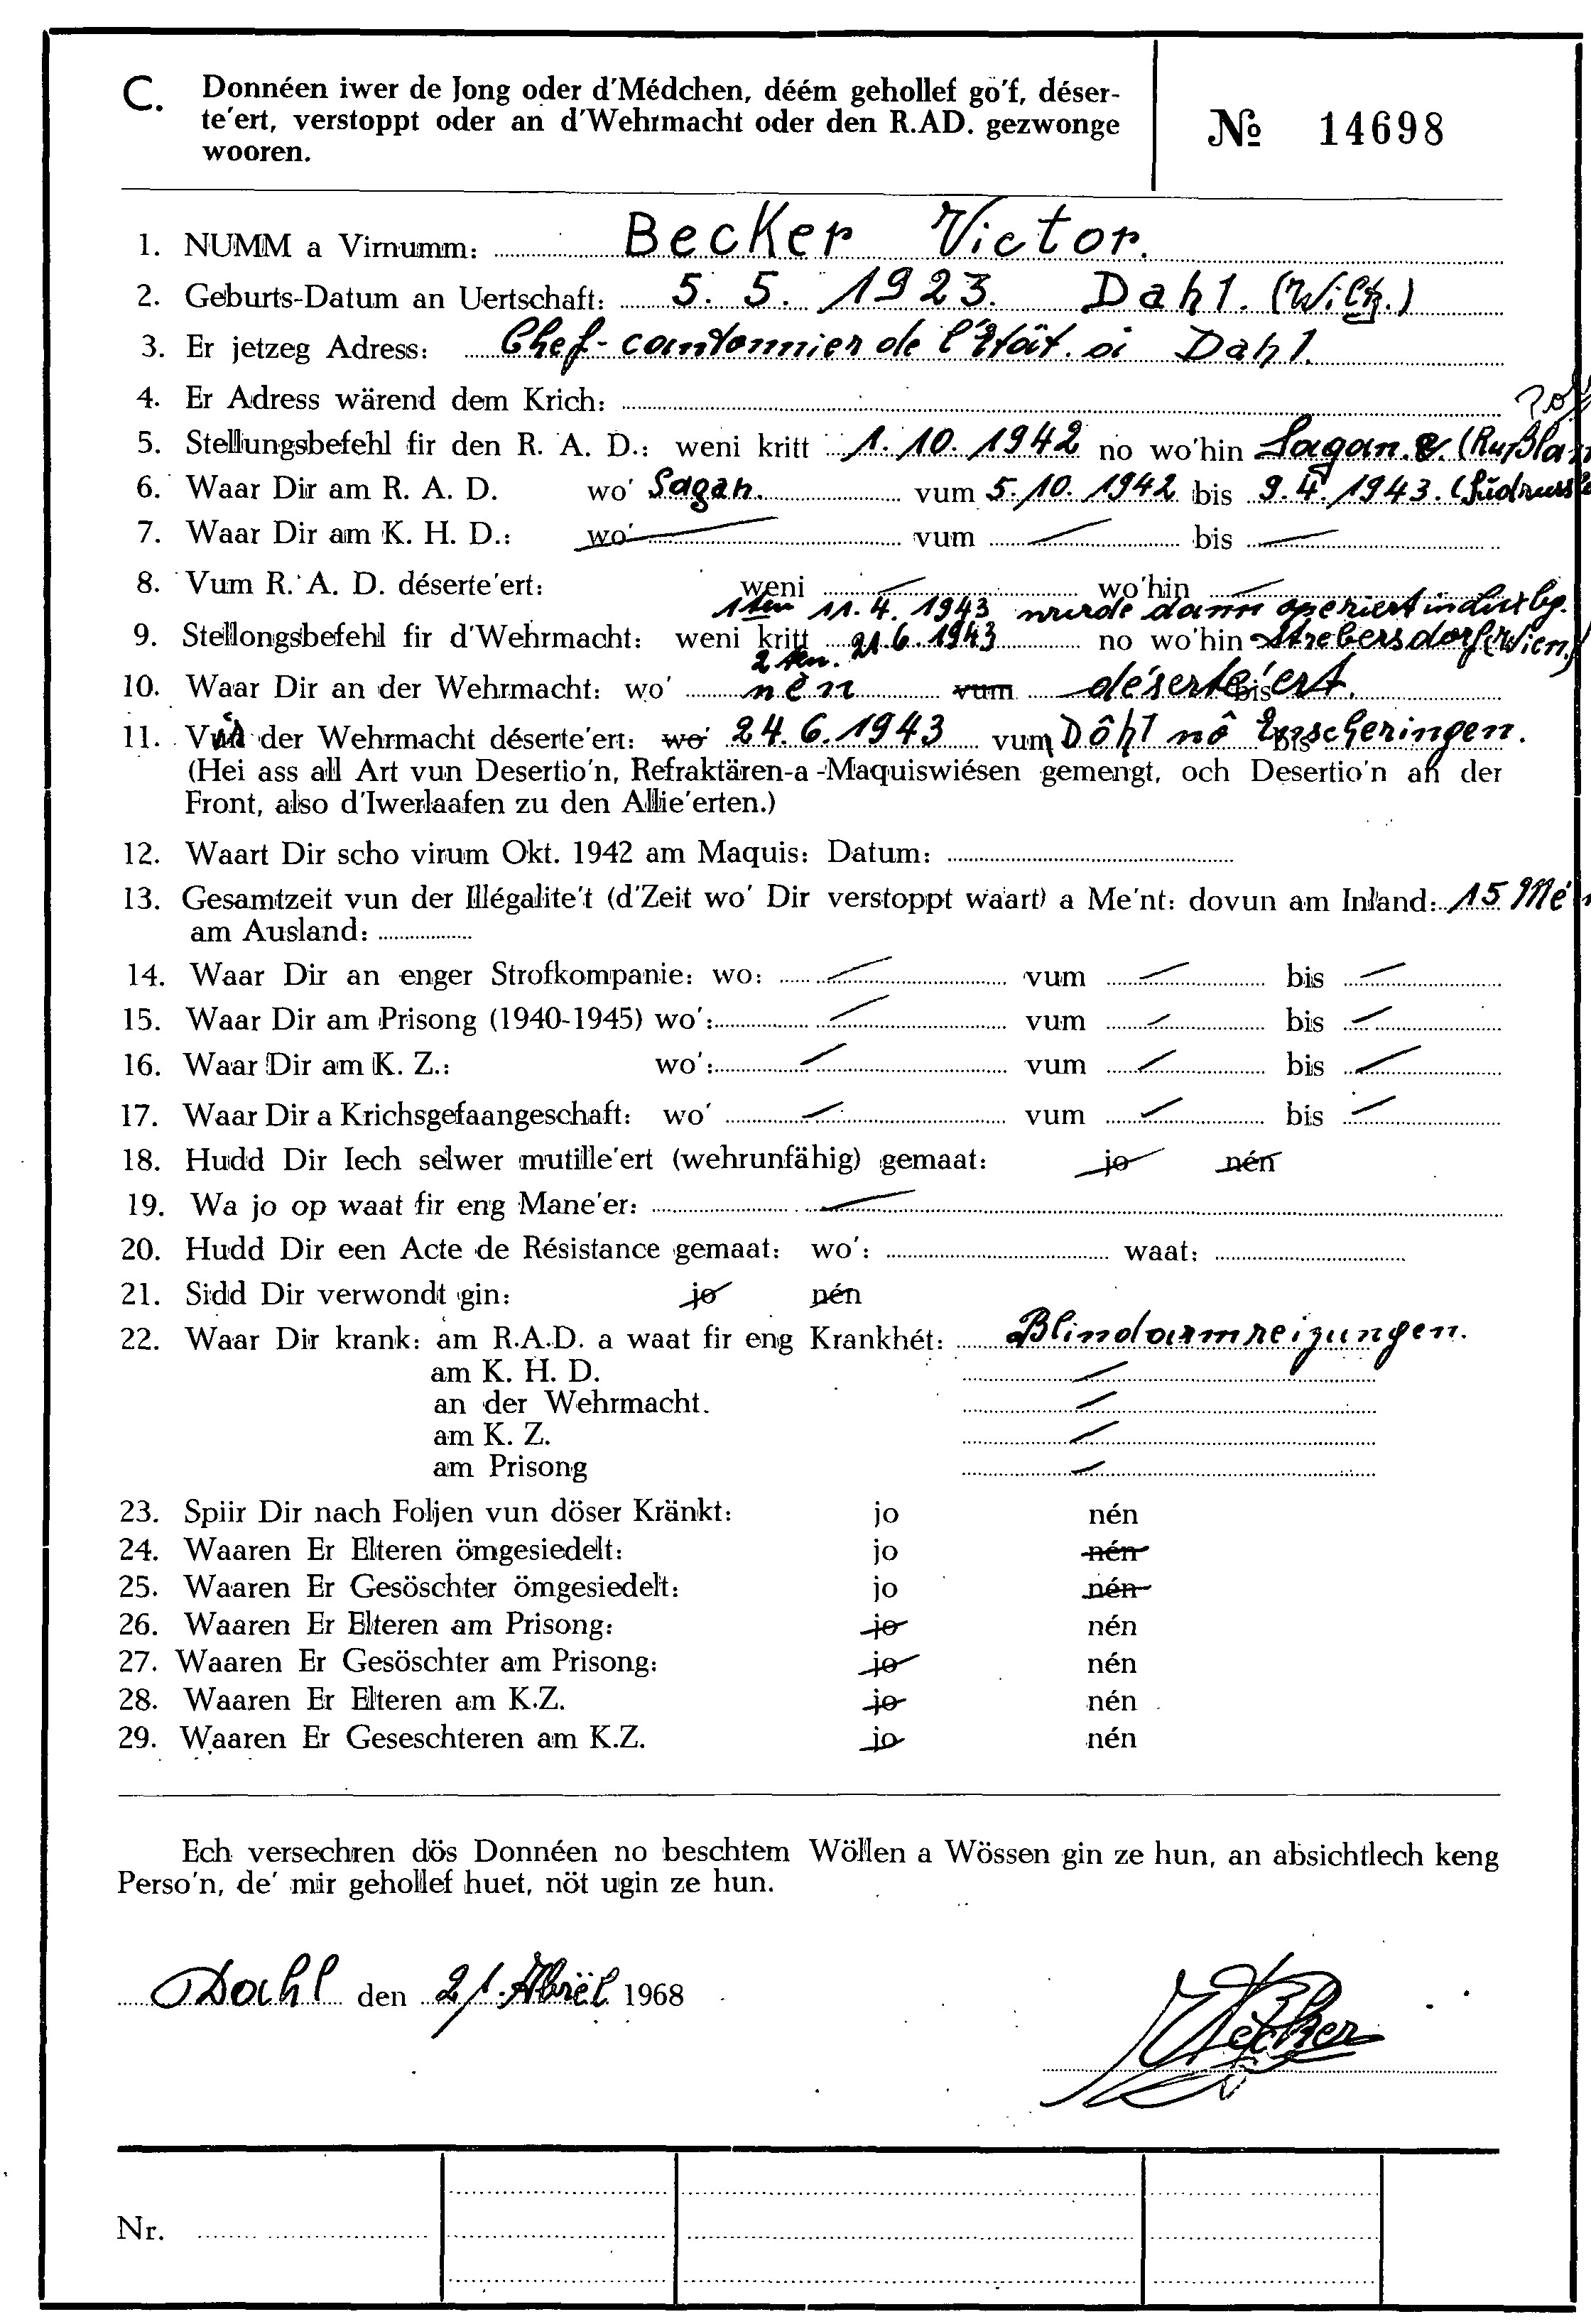 C. Donnéen iwer de Jong oder d'Médchen, déém gehollef gö'f, déser-
te'ert, verstoppt oder an d'Wehrmacht oder den R.AD. gezwonge
wooren.
№ 14698
1. NUMM a Virnumm: Becker Victor.
2. Geburts-Datum an Uertschaft: 5. 5. 1923. Dahl. (Wiltz.)
3. Er jetzeg Adress: Chef-cantonnier de l'Etat. Dahl.
4. Er Adress wärend dem Krich:
5. Stellungsbefehl fir den R. A. D.: weni kritt 1. 10. 1942 no wo'hin Sagan.
6. Waar Dir am R. A. D. wo' Sagan. vum 5. 10. 1942 bis 9. 4. 1943.
7. Waar Dir am K. H. D.: wo' vum bis
8. Vum R. A. D. déserte'ert: weni wo'hin
1ten 11. 4. 1943 wurde dann operiert in Luxbg.
9. Stellongsbefehl fir d'Wehrmacht: weni kritt 21. 6. 1943 no wo'hin Strebersdorf (Wien.)
2ten.
10. Waar Dir an der Wehrmacht: wo' nén vum déserte'ert. bis
11. der Wehrmacht déserte'ert: wo' 24. 6. 1943 vum Dôhl nô Enscheringen. bis
(Hei ass all Art vun Desertio'n, Refraktären-a -Maquiswiésen gemengt, och Desertio'n an der
Front, also d'Iwerlaafen zu den Allie'erten.)
12. Waart Dir scho virum Okt. 1942 am Maquis: Datum:
13. Gesamtzeit vun der Illégalite't (d'Zeit wo' Dir verstoppt waart) a Me'nt: dovun am Inland: 15
am Ausland:
14. Waar Dir an enger Strofkompanie: wo: vum bis
15. Waar Dir am Prisong (1940-1945) wo': vum bis
16. Waar Dir am K. Z.: wo': vum bis
17. Waar Dir a Krichsgefaangeschaft: wo' vum bis
18. Hudd Dir Iech selwer mutille'ert (wehrunfähig) gemaat: jo nén
19. Wa jo op waat fir eng Mane'er:
20. Hudd Dir een Acte de Résistance gemaat: wo': waat:
21. Sidd Dir verwondt gin: jo nén
22. Waar Dir krank: am R.A.D. a waat fir eng Krankhét: Blindarmreizungen.
am K. H. D.
an der Wehrmacht.
am K. Z.
am Prisong
23. Spiir Dir nach Foljen vun döser Kränkt: jo nén
24. Waaren Er Elteren ömgesiedelt: jo nén
25. Waaren Er Gesöschter ömgesiedelt: jo nén
26. Waaren Er Elteren am Prisong: jo nén
27. Waaren Er Gesöschter am Prisong: jo nén
28. Waaren Er Elteren am K.Z. jo nén
29. Waaren Er Geseschteren am K.Z. jo nén
Ech versechren dös Donnéen no beschtem Wöllen a Wössen gin ze hun, an absichtlech keng
Perso'n, de' mir gehollef huet, nöt ugin ze hun.
Dahl den 21. Abrël 1968
Becker
Nr.